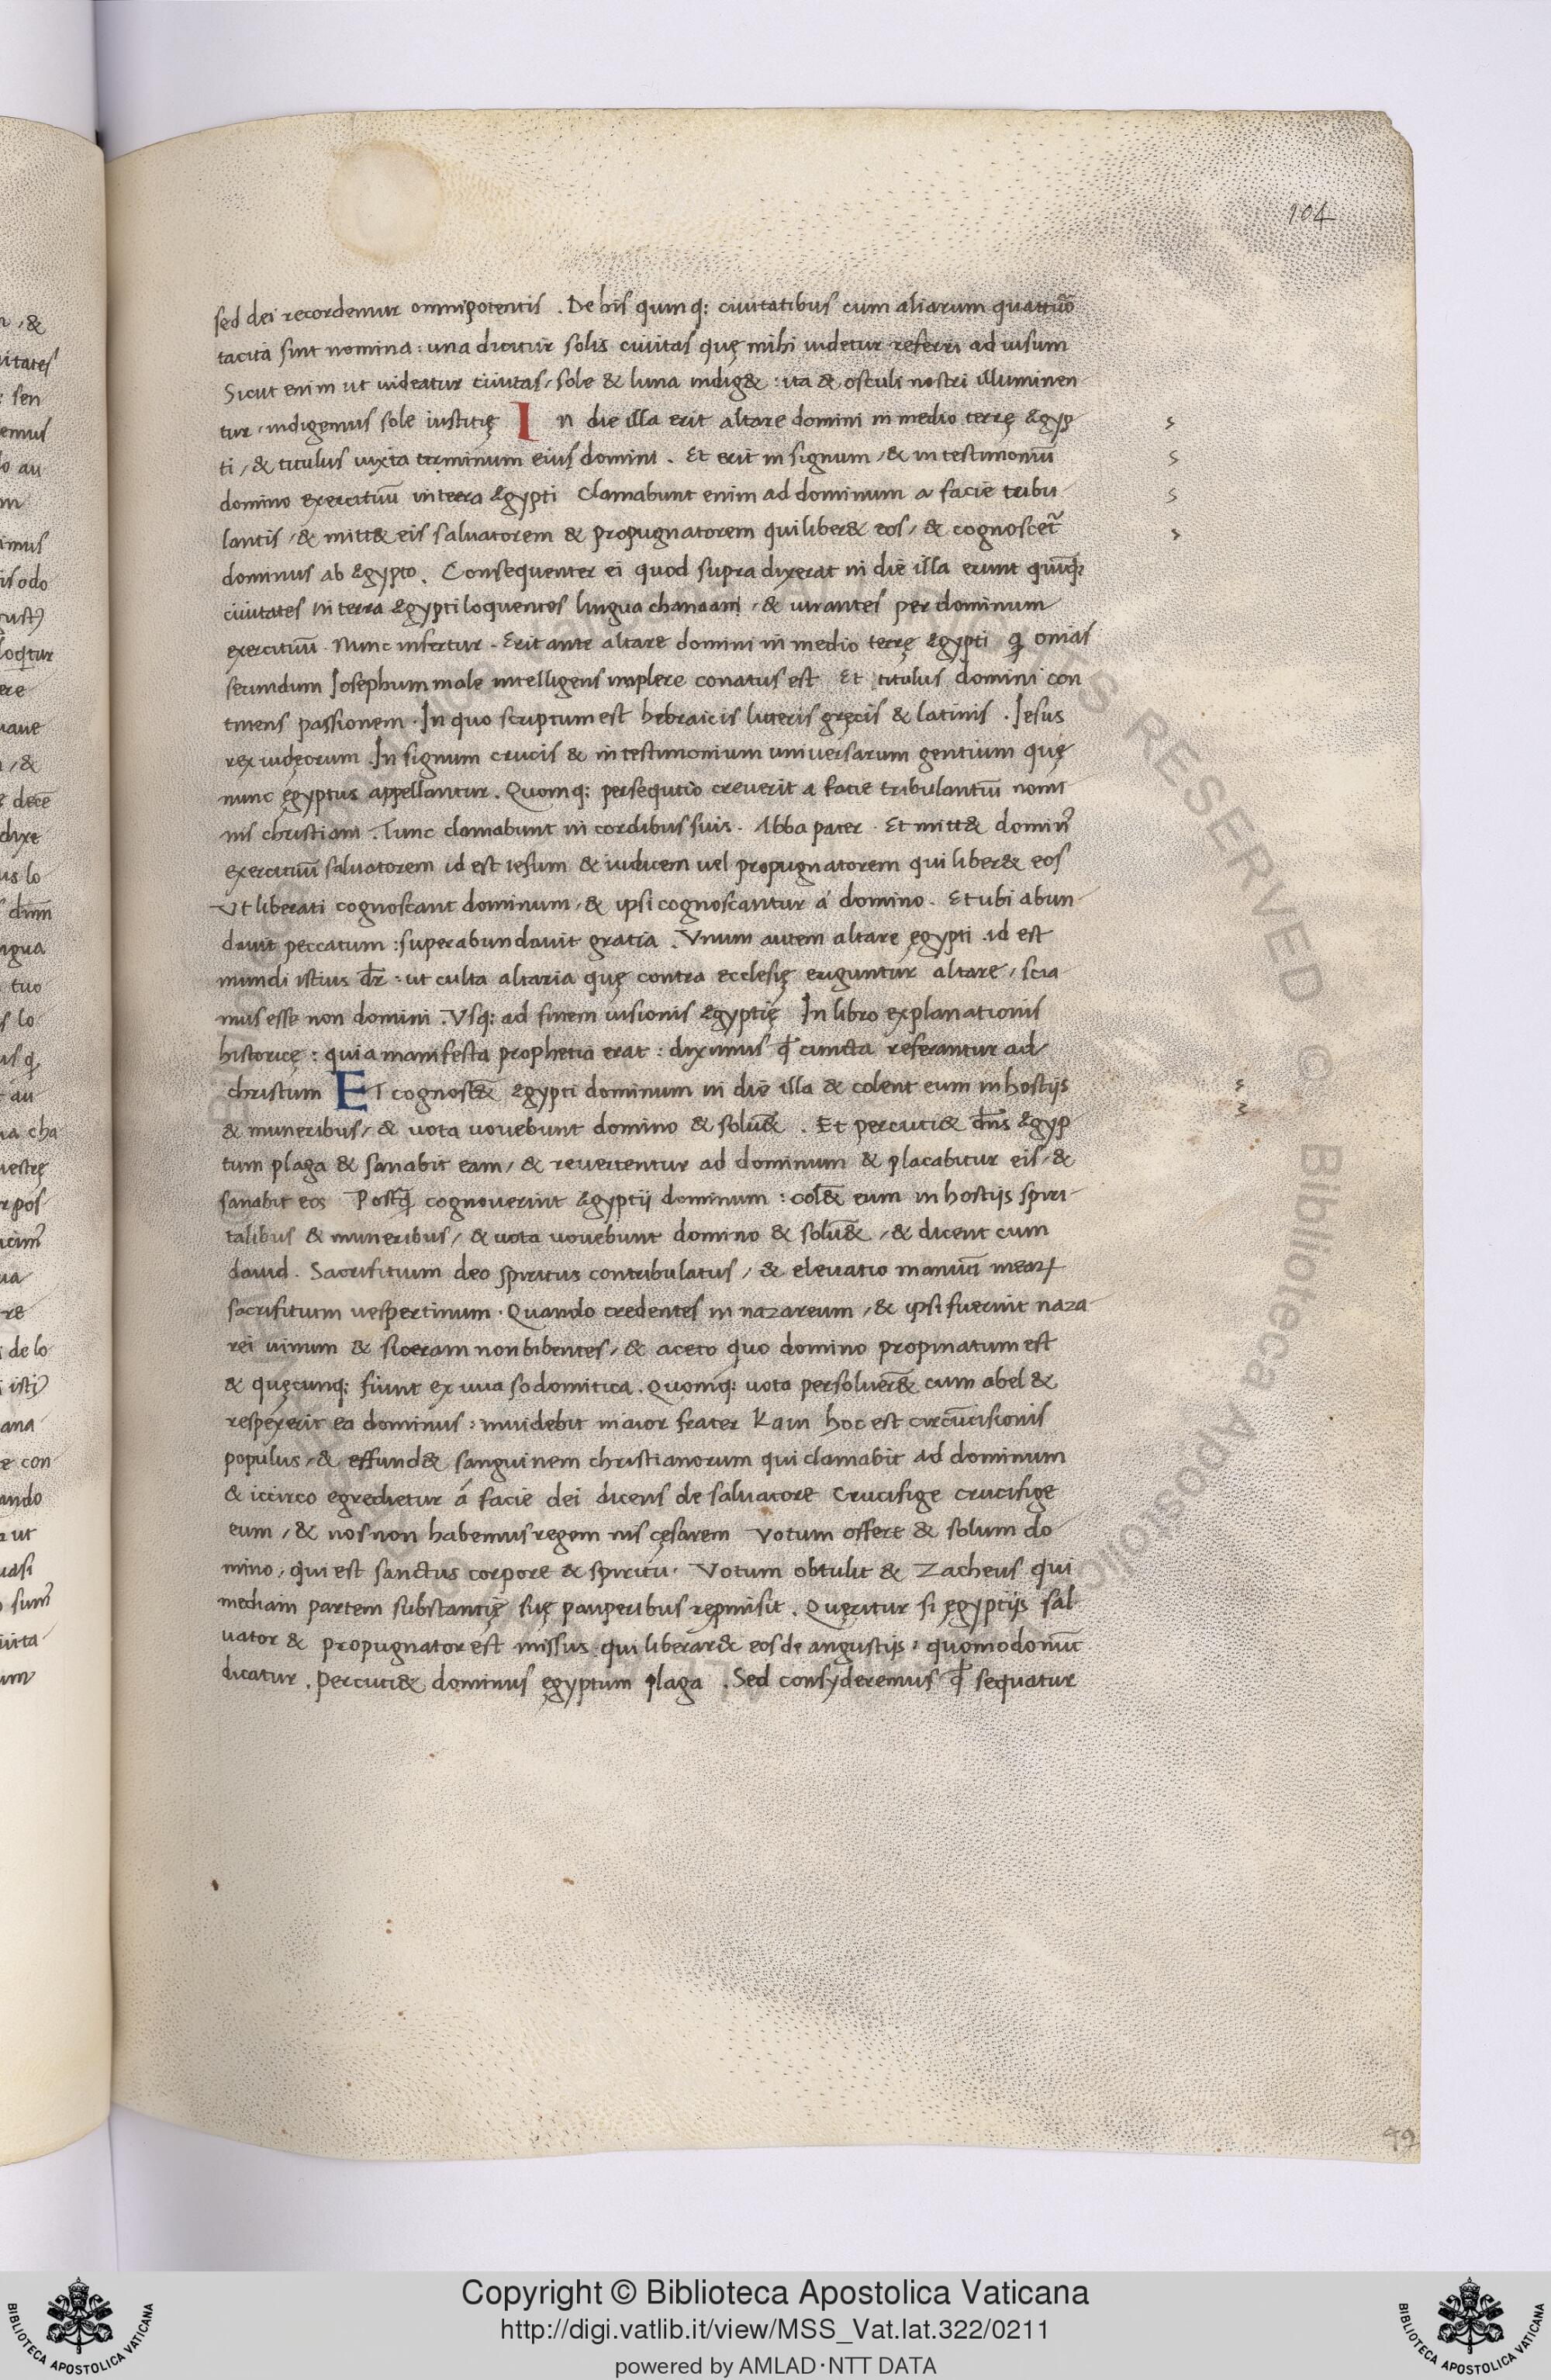 104
sed dei recordemur omnipotentis . De his quinq: ciuitatibus cum aliarum quattuor̃
tacita sint nomina : una dicitur solis ciuitas quę mihi uidetur referri ad uisum
Sicut enim ut uideatur ciuitas / sole & luna indig& : ita & osculi nostri illuminen
tur / indigemus sole iustitię In die illa erit altare domini in medio terrę ęgyp
ti / & titulus iuxta terminum eius domini . Et erit in signum / & in testimoniū
domino exercituū in terra ęgypti Clamabunt enim ad dominum a facie tribu
lantis / & mitt& eis saluatorem & propugnatorem qui liber& eos / & cognoscet᷑
dominus ab ęgypto . Consequenter ei quod supra dixerat in die illa erunt quīq:
ciuitates in terra ęgypti loquentes lingua chanaam / & iurantes per dominum
exercituū . Nunc infertur . Erit ante altare domini in medio terrę ęgypti ꝙ onias
secundum Josephum male intelligens implere conatus est Et titulus domini con
tinens passionem . In quo scriptum est hebraicis litteris gręcis & latinis . Jesus
rex iudęorum . In signum crucis & in testimonium uniuersarum gentium quę
nunc ęgyptus appellantur . Quomq: persequtio creuerit a facie tribulantiū nomi
nis christiani . Tunc clamabunt in cordibus suis . Abba pater . Et mitt& domin᷑
exercituū saluatorem id est iesum & iudicem uel propugnatorem qui liber& eos
Ut liberati cognoscant dominum / & ipsi cognoscantur á domino . Et ubi abun
dauit peccatum : superabundauit gratia . Vnum autem altare ęgypti id est
mundi istius dr̄ . ut culta altaria quę contra ecclesię eriguntur altare / scia
mus esse non domini . Vsq: ad finem uisionis ęgyptię In libro explanationis
historicę : quia manifesta prophetia erat : diximus ꝗ̄ cuncta referantur ad
christum ET cognosc&̄ ęgypti dominum in die illa & colent eum in hostijs
& muneribus / & uota uouebunt domino & solu&̄ . Et percuti& dn̄s ęgyp
tum plaga & sanabit eam / & reuertentur ad dominum & placabitur eis / &
sanabit eos Postꝙ̄ cognouerint ęgyptij dominum : col&̄ eum in hostijs spiri
talibus & muneribus / & uota uouebunt domino & solu&̄ / & dicent cum
dauid . Sacrifitium deo spiritus contribulatus / & eleuatio manuū mearꝝ
sacrifitium uespertinum . Quando credentes in nazareum / & ipsi fuerint naza
rei uinum & siceram non bibentes / & aceto quo domino propinatum est
& quęcunq: fiunt ex uua sodomitica . Quomq: uota persoluer&̄ cum abel &
respexerit ea dominus : inuidebit maior frater Kain hoc est circūcisionis
populus / & effund& sanguinem christianorum qui clamabit ad dominum
& iccirco egredietur á facie dei dicens de saluatore Crucifige crucifige
eum / & nos non habemus regem nis cęsarem Votum offert & solum do
mino / qui est sanctus corpore & spiritu . Votum obtulit & Zacheus qui
mediam partem substantię suę pauperibus repmisit . Quęritur si ęgyptijs sal
uator & propugnator est missus . qui liberar& eos de angustijs : quomodo nūc
dicatur . Percuti& dominus ęgyptum plaga . Sed consyderemus ꝗ̄ sequatur
Copyright © Biblioteca Apostolica Vaticana
http://digi.vatlib.it/view/MSS_Vat.lat.322/0211
powered by AMLAD·NTT DATA